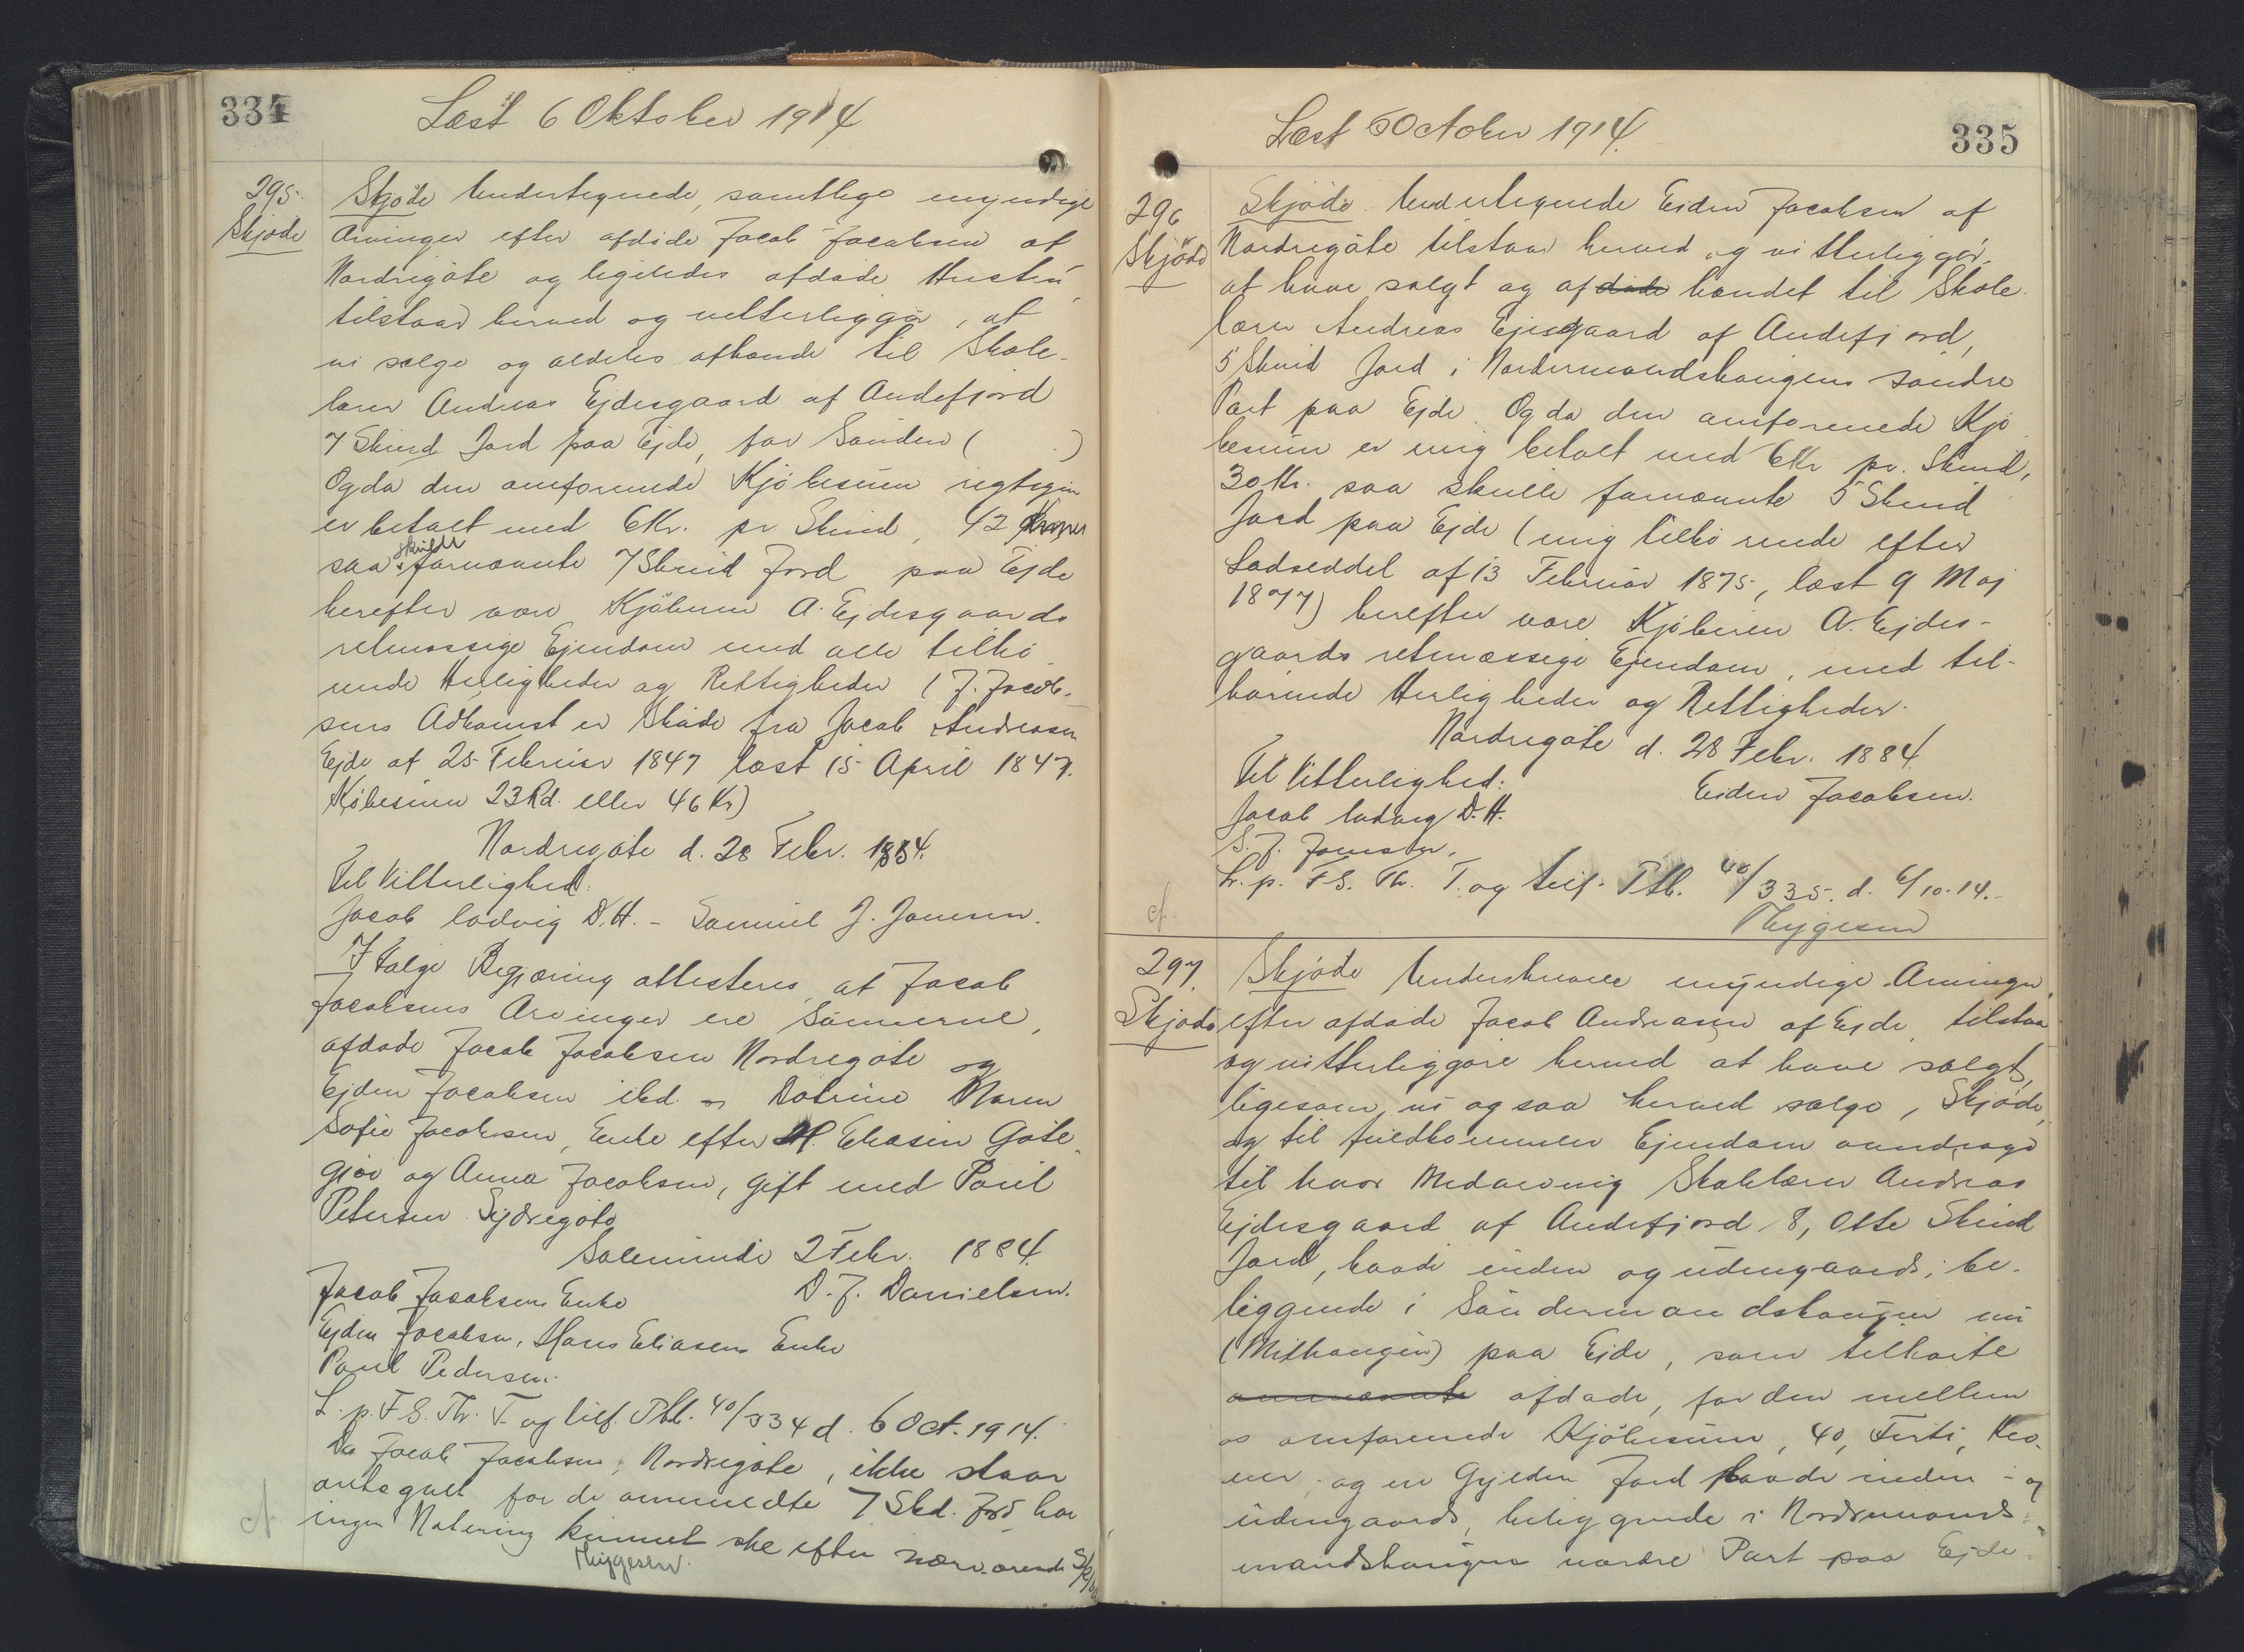 334
Læst 6 Oktober 1914
295.
Skjøde
Skjøde Undertegnede, samtlige myndige
Arvinger efter afdøde Jacob Jacobsen af
Nordregøte og ligeledes afdøde Hustru
tilstaar herved og vitterliggør, at
vi sælge og aldeles afhænde til Skole-
lærer Andreas Ejdesgaard af Andefjord
7 Skind Jord paa Ejde, før Sønden ( )
Og da den omforenede Kjøbesum rigtigen
er betalt med 6 Kr. pr Skind, 42 Kroner
saa skulde fornævnte 7 Skind Jord paa Ejde
herefter være Kjøberen A. Ejdesgaards
retmæssige Ejendom med alle tilhø
rende Herligheder og Rettigheder ( J. Jacob-
sens Adkomst er Skøde fra Jacob Andreasen
Ejde af 25 Februar 1847 læst 15 April 1847.
Købesum 23 Rd. eller 46 Kr)
Nordregøte d. 28 Febr. 1884.
Til Vitterlighed:
Jacob Ludvig D.H. - Samuel J. Joensen.
Ifølge Begjæring attesteres, at Jacob
Jacobsens Arvinger ere Sønnerne,
afdøde Jacob Jacobsen Nordregøte og
Ejden Jacobsen ibd. og Døtrene Maren
Sofie Jacobsen, Enke efter H. Eliasen Gøte-
gjov og Anna Jacobsen, gift med Poul
Petersen Sydregøte
Salemunde 2 Febr. 1884.
Jacob Jacobsens Enke D. J. Danielsen.
Ejden Jacobsen, Hans Eliasens Enke
Poul Pedersen.
L. p. F S. Th. T. og tilf. Ptb. 40/334 d. 6 Oct. 1914.
Da Jacob Jacobsen, Nordregøte, ikke staar
antegnet for de ommeldte 7 Skd. Jord har
ingen Notering kunnet ske efter nærværende
Thygesen.
335
Læst 6 October 1914.
296
Skjøde
Skjøde. Undertegnede Eiden Jacobsen af
Nordregøte tilstaar herved og vitterliggør,
at have solgt og afdøde hændet til Skole-
lærer Andreas Ejesgaard af Andefjord,
5 Skind Jord i Nordermandshaugens søndre
Part paa Ejde. Og da den omforenede Kjø
besum er mig betalt med 6 Kr pr. Skind,
30 Kr. saa skulle fornævnte 5 Skind
Jord paa Ejde (mig tilhørende efter
Lodseddel af 13 Februar 1875, læst 9 Maj
1877) herefter være Kjøberen A. Ejdes-
gaards retmæssige Ejendom, med til-
hørende Herligheder og Rettigheder.
Nordregøte d. 28 Febr. 1884.
Til Vitterlighed: Eiden Jacobsen.
Jacob Ludvig D.H.
S. J. Joensen.
L. p. F S. Th. T. og tilf. Ptb. 40/335. d. 6/10-14.
Thygesen
297.
Skjøde
Skjøde Underskrevne myndige Arvinger
efter afdøde Jacob Andreasen af Ejde, tilstaa
og vitterliggøre herved at have solgt,
ligesom vi ogsaa herved sælge, Skjøde,
og til fuldkommen Ejendom overdrage
til vor Medarving Skolelærer Andreas
Ejdesgaard af Andefjord 8, Otte Skind
Jord, baade inden og udengaards, be-
liggende i Søndermandshaugen nu
(Mithaugen) paa Ejde, som tilhørte
ovennævnte afdøde, for den mellem
os omforenede Kjøbesum, 40, Firti, Kro-
ner, og en Gylden Jord baade inden- og
udengaards, beliggende i Nordermands-
mandshaugens nordre Part paa Ejde